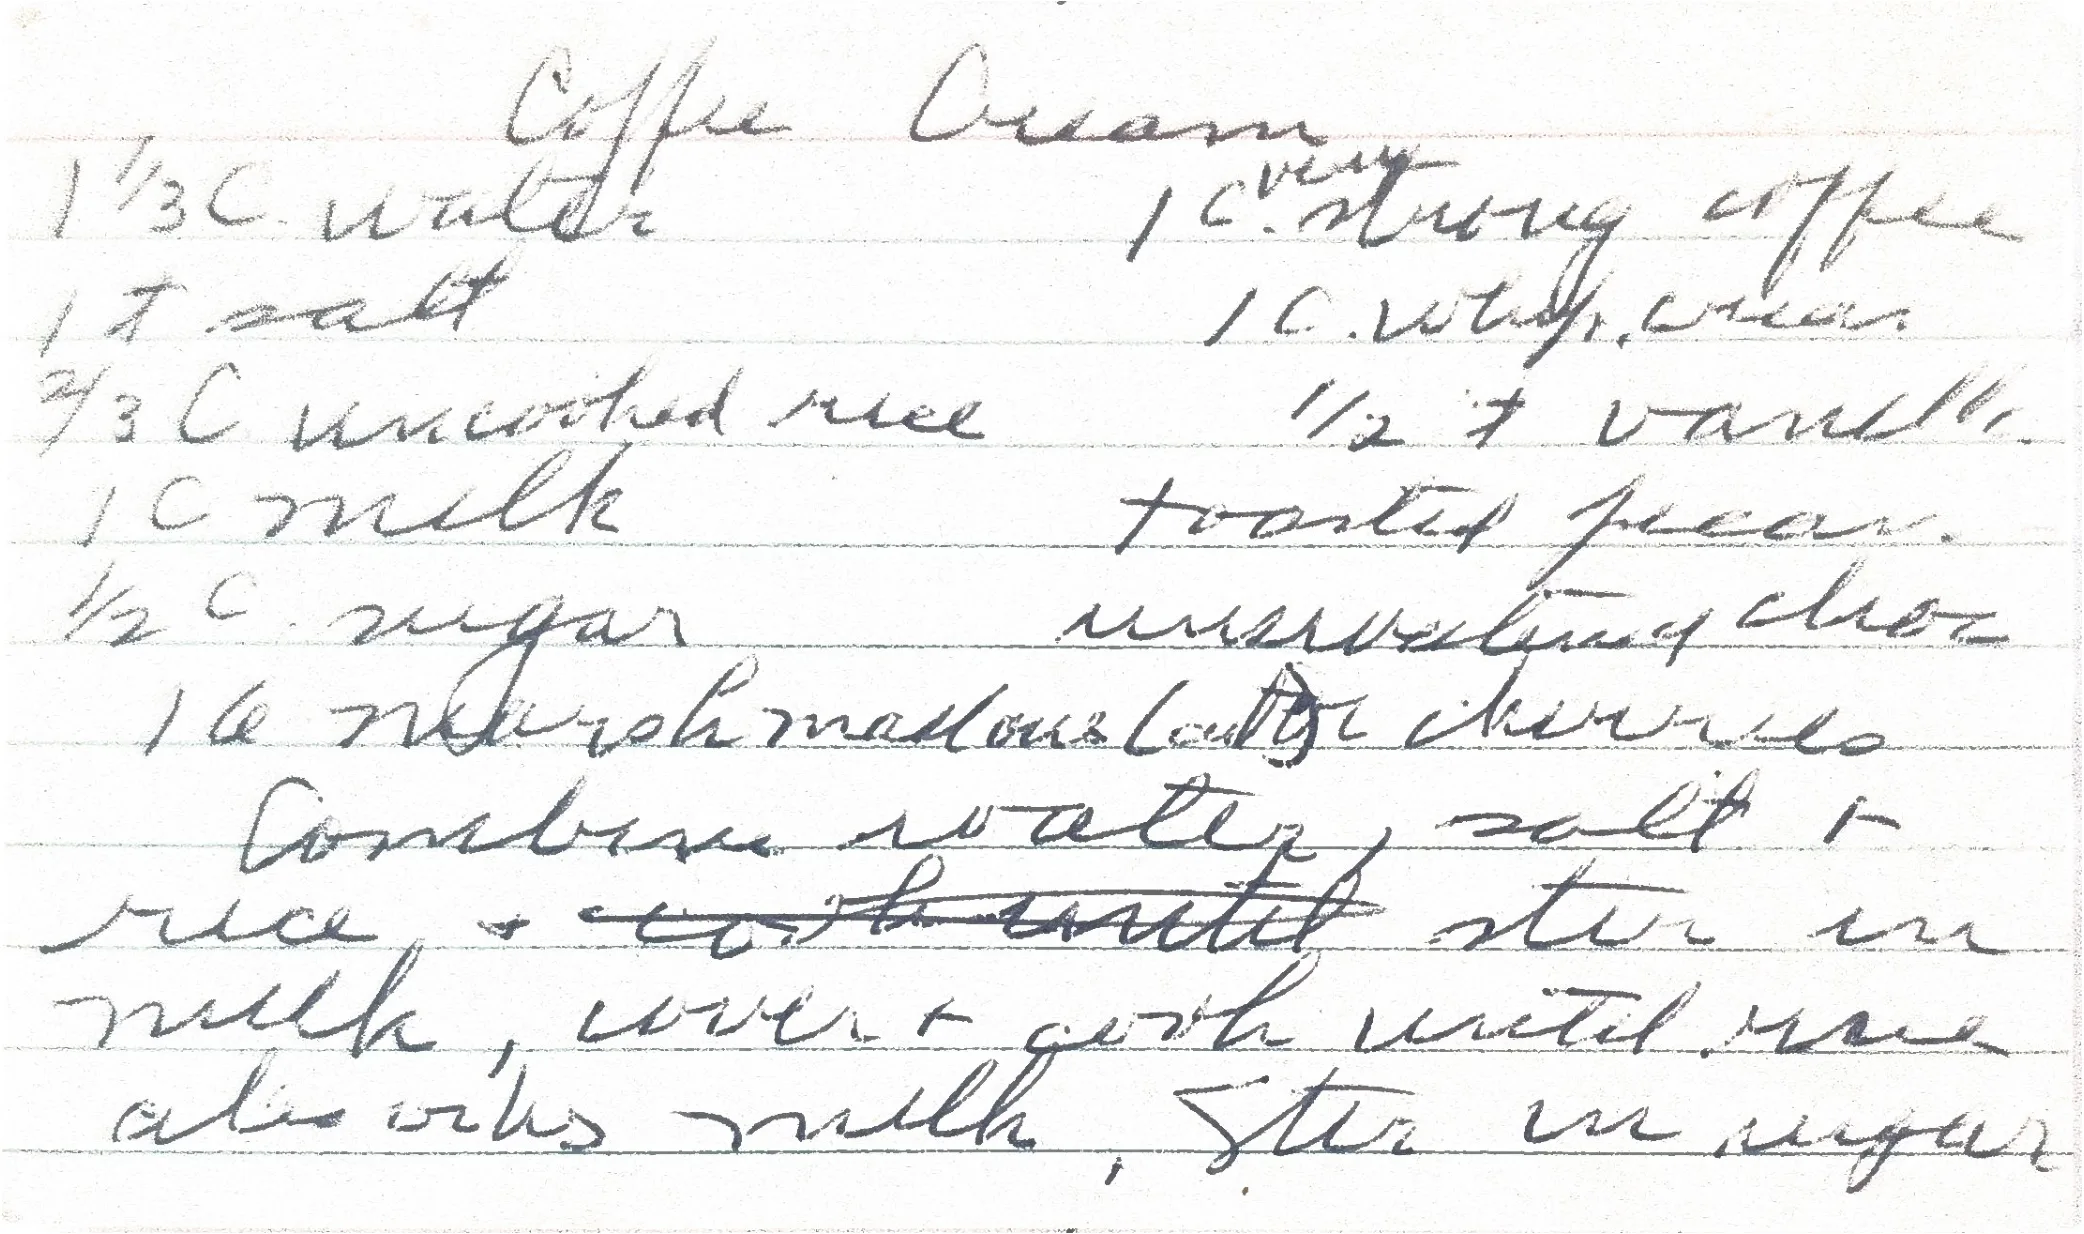 Coffee Cream
1 1/3 C. water
1 t salt
2/3 C uncooked rice
1 C milk
1/2 C. sugar
16 marshmallows (cut)
1 C. very strong coffee
1 C. whip. cream
1/2 t vanilla
toasted pecans
choc
or cherries
Combine water, salt +
rice, + cook until stir in
milk, cover + cook until rice
absorbs milk, Stir in sugar